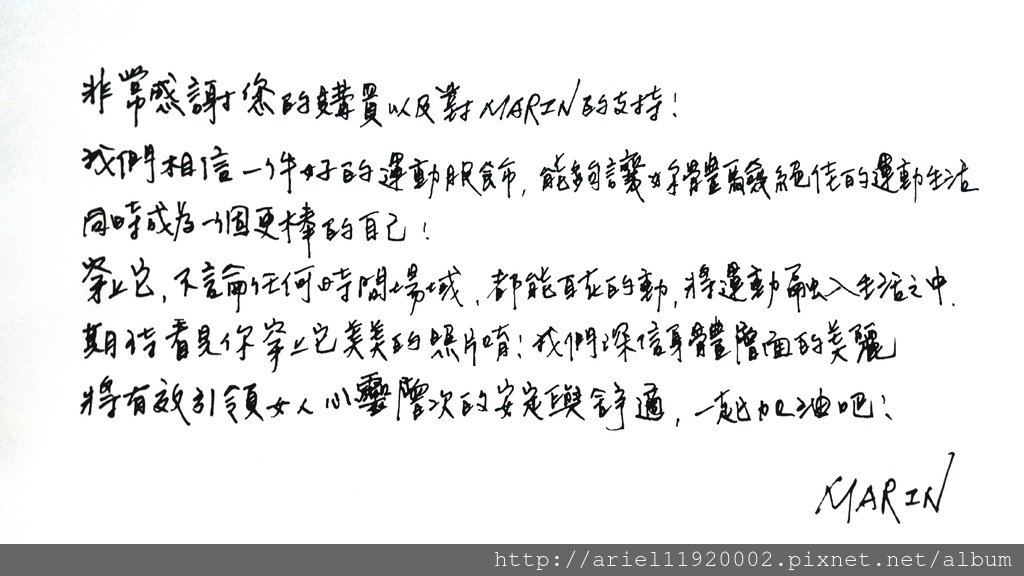 非常感謝您的購買以及對MARIN的支持!
我們相信一件好的運動服飾,能夠讓妳體驗絕佳的運動生活
同時成為一個更棒的自己!
穿上它,不論任何時間場域,都能自在的動,將運動融入生活之中.
期待看見你穿上它美美的照片唷!我們深信身體層面的美麗
將有效引領女人心靈層次的安定與舒適,一起加油吧!
MARIN
http://ariel11920002.pixnet.net/album